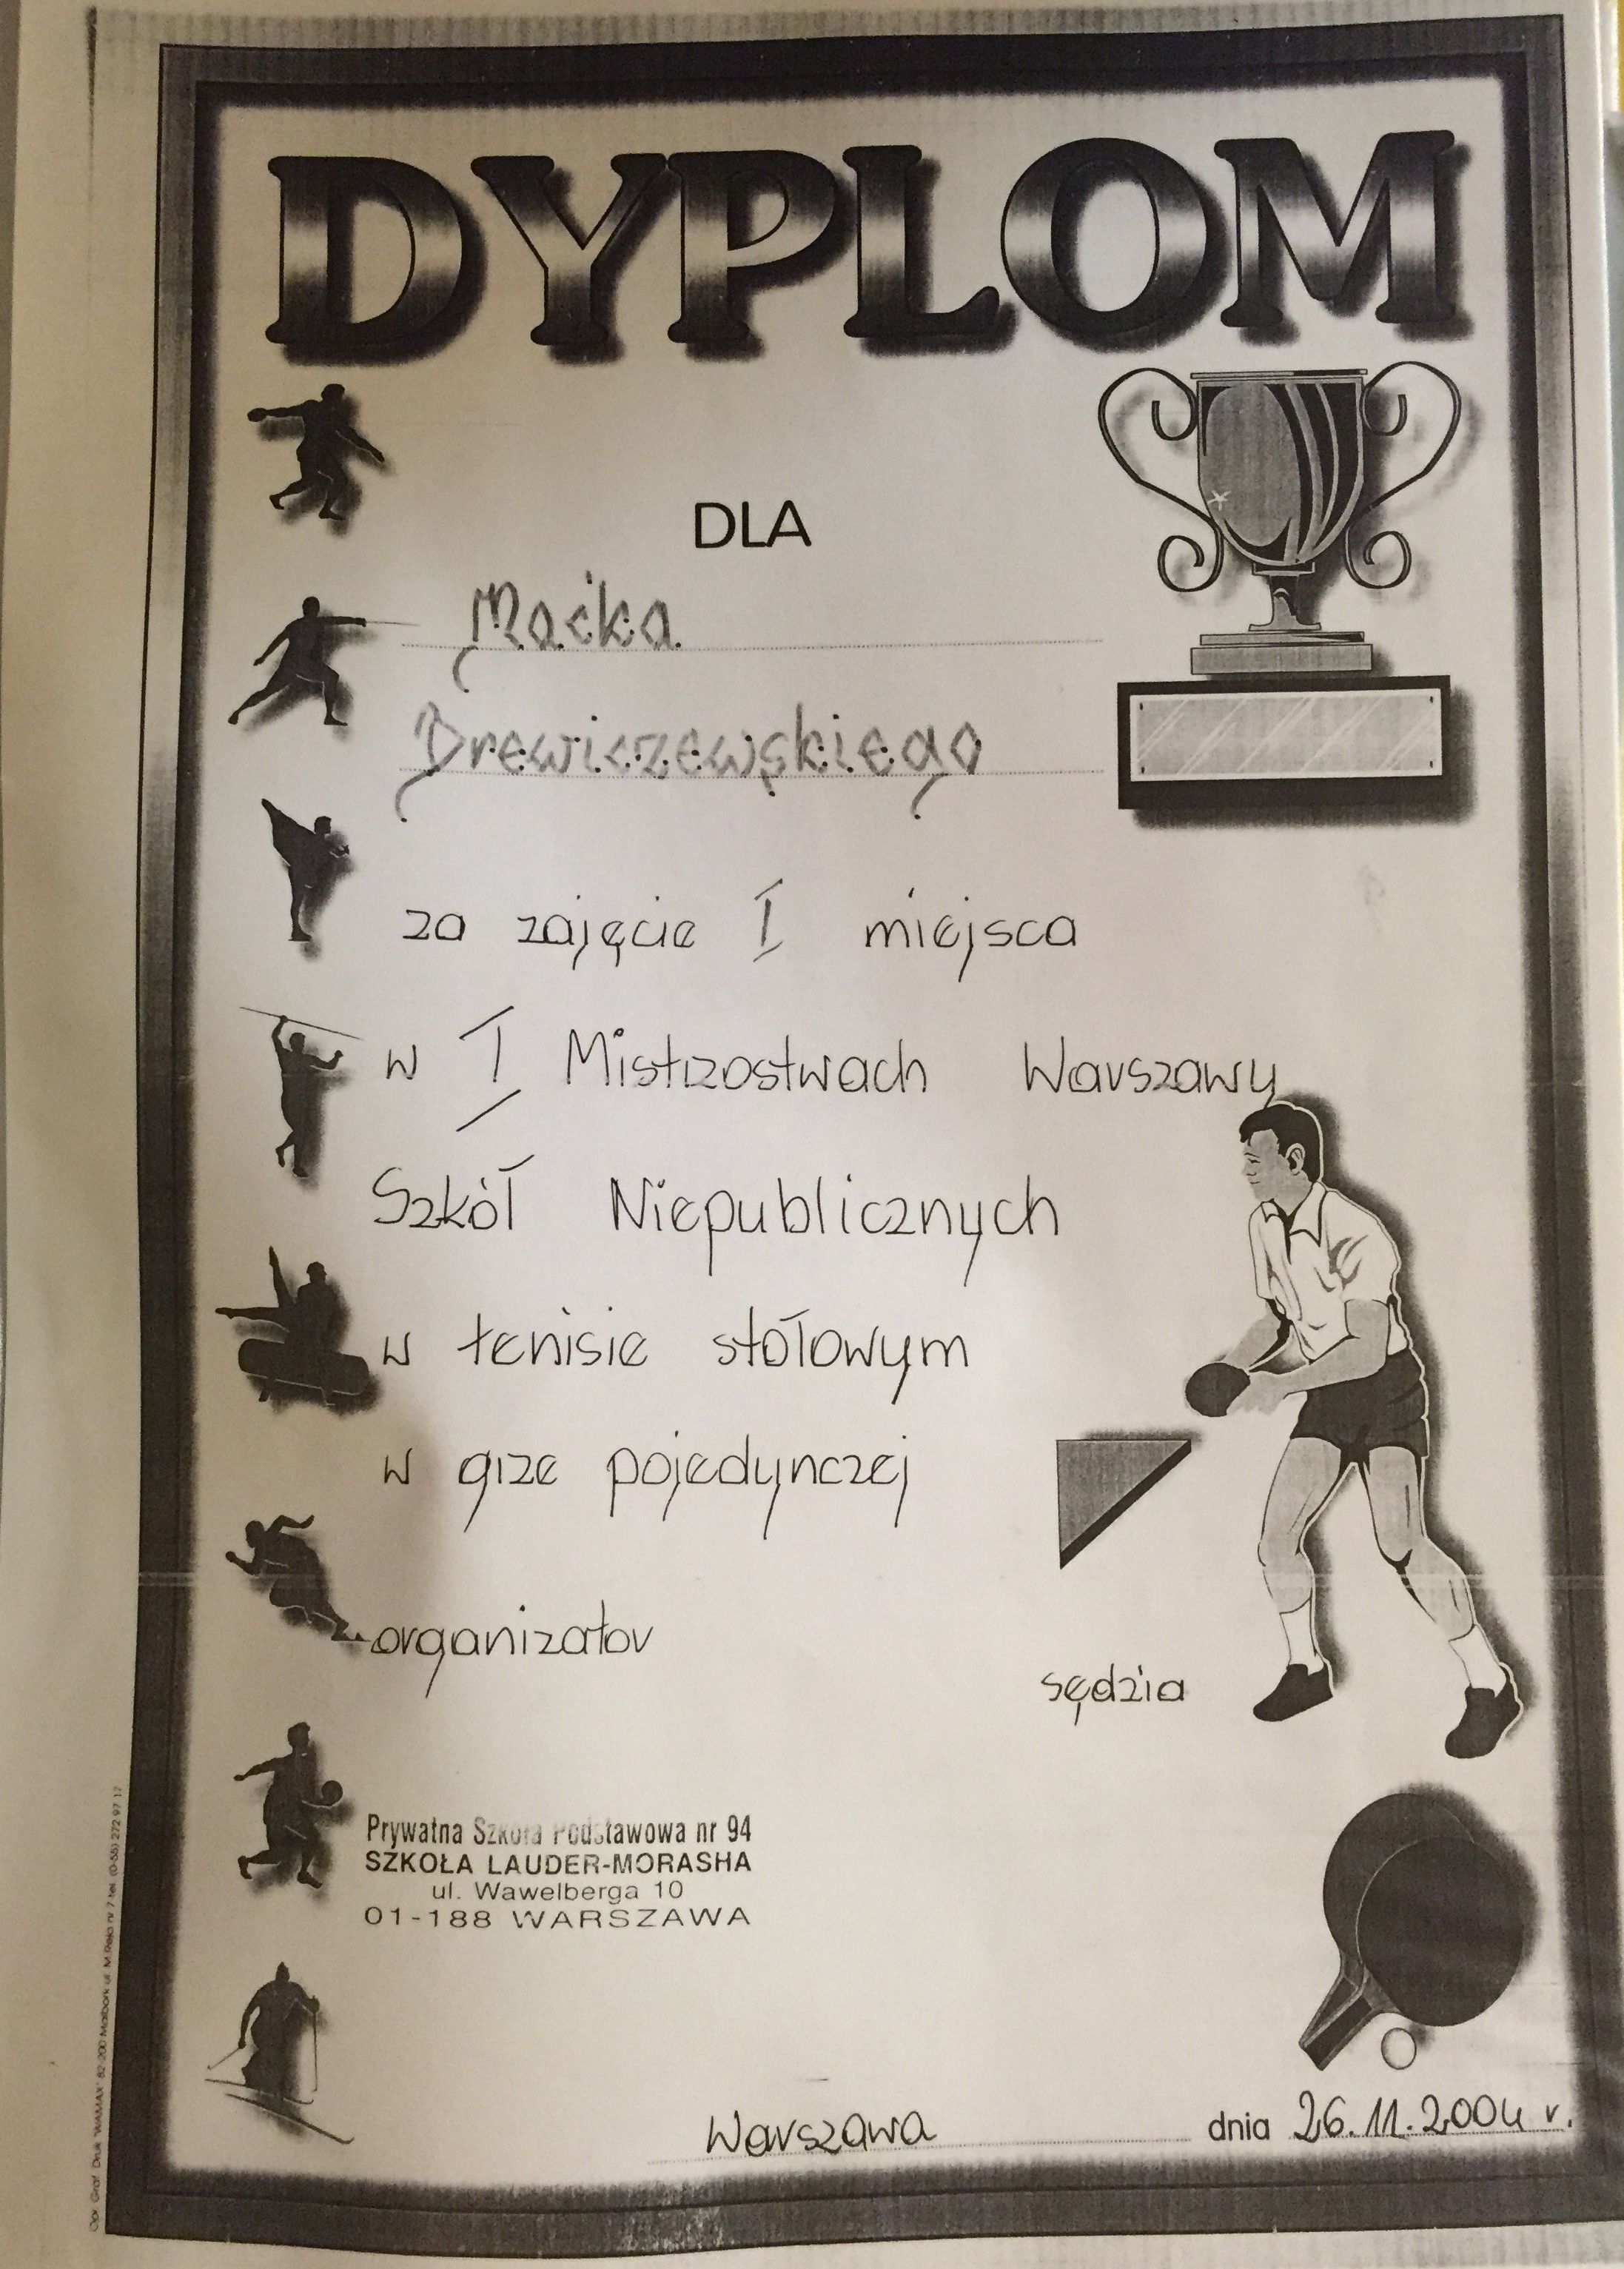 DYPLOM
DLA
Maćka
Drewiczewskiego
za zajęcie I miejsca
w I Mistrzostwach Warszawy
Szkół Niepublicznych
w tenisie stołowym
w grze pojedynczej
organizator
sędzia
Prywatna Szkoła Podstawowa nr 94
SZKOŁA LAUDER-MORASHA
ul. Wawelberga 10
01-188 WARSZAWA
Warszawa dnia 26.11.2004 r.
Opr. Graf. Druk "WAMAX" 82-200 Malbork ul. M. Reja nr 7 tel. (0-55) 272 97 17